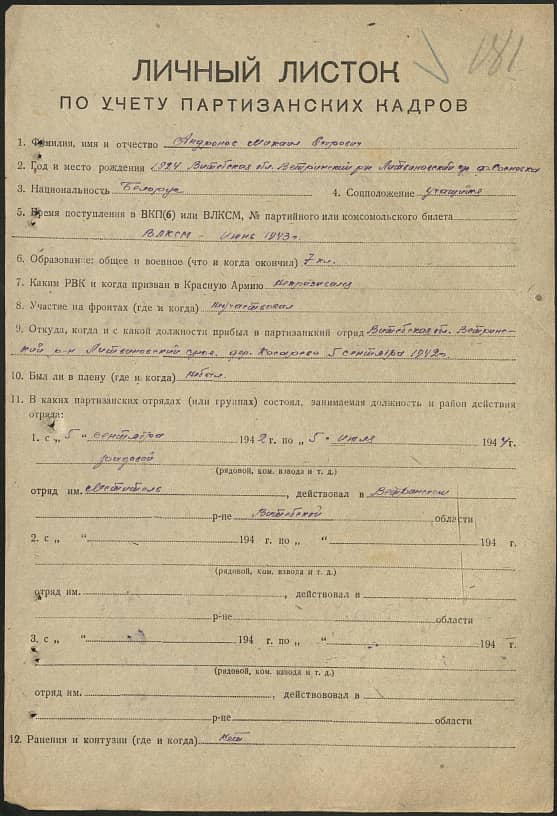 181
ЛИЧНЫЙ ЛИСТОК
ПО УЧЕТУ ПАРТИЗАНСКИХ КАДРОВ
1. Фамилия, имя и отчество Михаил
2. Год и место рождения 1924 Витебская обл. Ветринский рн Литвиновский д. Сосновка
3. Национальность Белорус 4. Соцположение учащийся
5. Время поступления в ВКП(б) или ВЛКСМ, № партийного или комсомольского билета
ВЛКСМ - июнь 1943г.
6. Образование: общее и военное (что и когда окончил) 7 кл.
7. Каким РВК и когда призван в Красную Армию непризывался
8. Участие на фронтах (где и когда) неучаствовал
9. Откуда, когда и с какой должности прибыл в партизанккий отряд Витебская обл. Ветрин-
ский р-н Литвиновский дер. 5 сентября 1942г.
10. Был ли в плену (где и когда) небыл.
11. В каких партизанских отрядах (или группах) состоял, занимаемая должность и район действия
отряда:
1. с „ 5 “ сентября 1942 г. по „ 5 “ июля 1944 г.
рядовой
(рядовой, ком. взвода и т. д.)
отряд им. Мститель, действовал в Ветринском
р-не Витебской области
2. с „ “ 194 г. по „ “ 194 г.
(рядовой, ком. взвода и т. д.)
отряд им. , действовал в
р-не области
3. с „ “ 194 г. по „ “ 194 г.
(рядовой, ком. взвода и т. д.)
отряд им. , действововал в
р-не области
12. Ранения и контузии (где и когда) нет